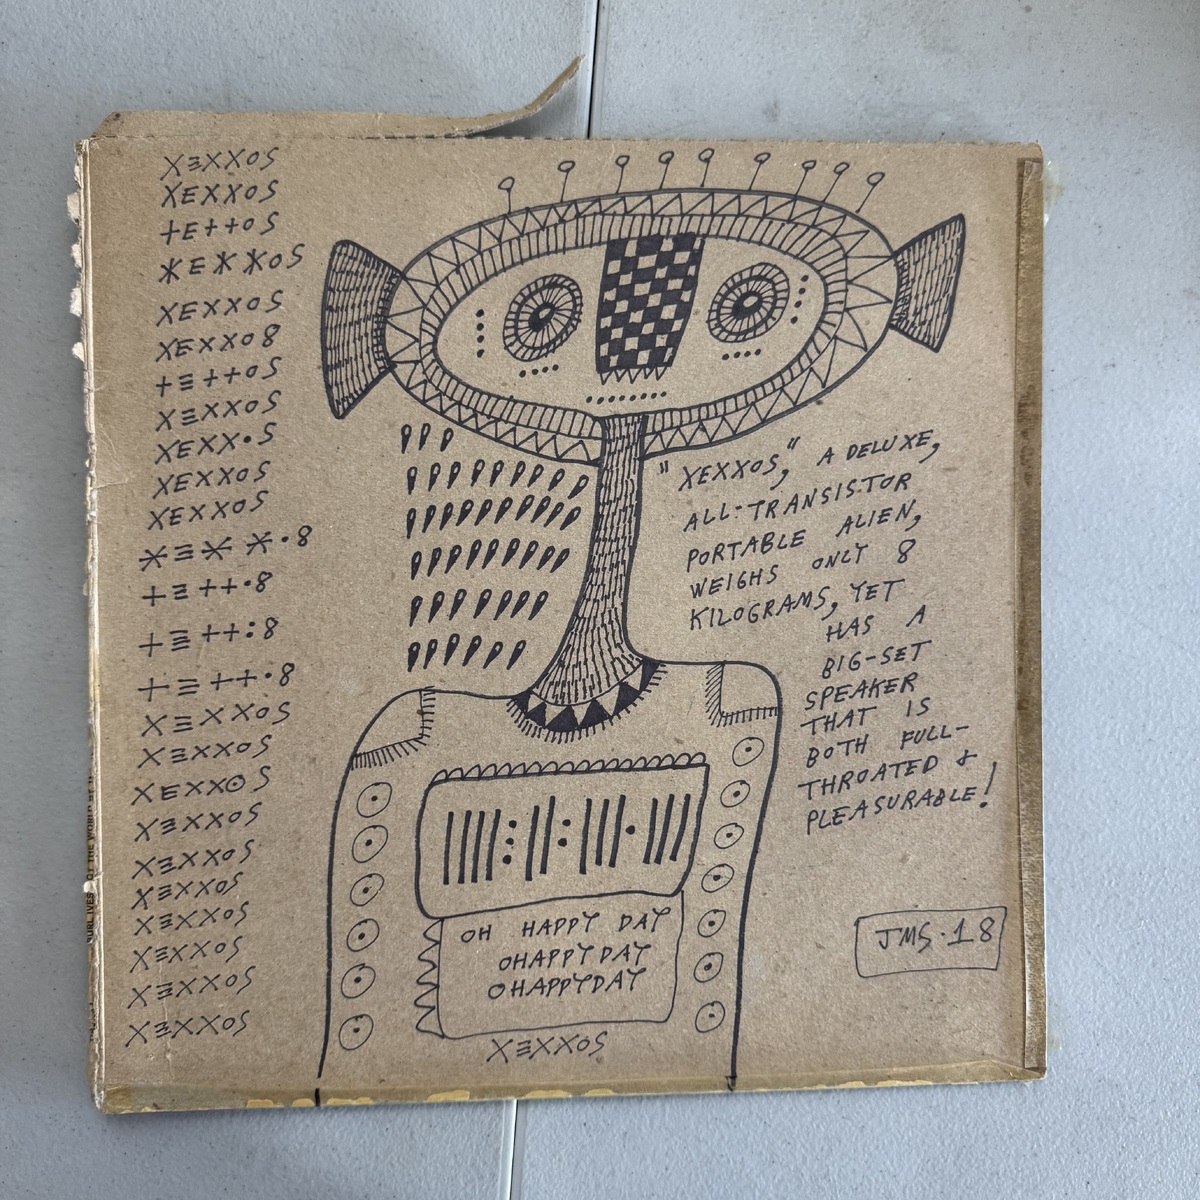 XΞXXOS
XEXXOS
+E++OS
ӾEӾӾOS
XEXXOS
XEXXO8
+Ξ++OS
XΞXXOS
XEXX•S
XEXXOS
XEXXOS
ӾΞӾ Ӿ•8
+Ξ++•8
+Ξ++:8
+Ξ++•8
XΞXXOS
XΞXXOS
XEXX⊙S
XΞXXOS
XΞXXOS
XΞXXOS
XΞXXOS
XΞXXOS
XΞXXOS
XΞXXOS
"XEXXOS," A DELUXE,
ALL-TRANSISTOR
PORTABLE ALIEN,
WEIGHS ONLY 8
KILOGRAMS, YET
HAS A
BIG-SET
SPEAKER
THAT IS
BOTH FULL-
THROATED &
PLEASURABLE!
OH HAPPY DAY
OHAPPY DAY
OHAPPYDAY
XΞXXOS
JMS•18